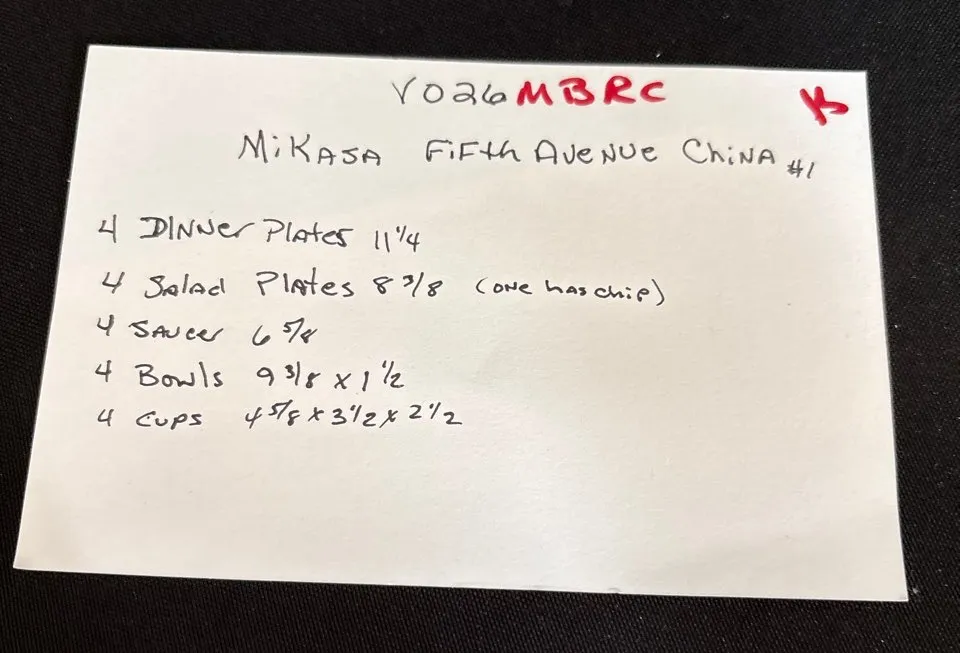 V026 MBRC K
MiKASA FiFth AVENUE ChiNA #1
4 DINNer Plates 11 1/4
4 Salad Plates 8 3/8 (ONE has chip)
4 SAUCer 6 5/8
4 Bowls 9 3/8 x 1 1/2
4 Cups 4 5/8 x 3 1/2 x 2 1/2